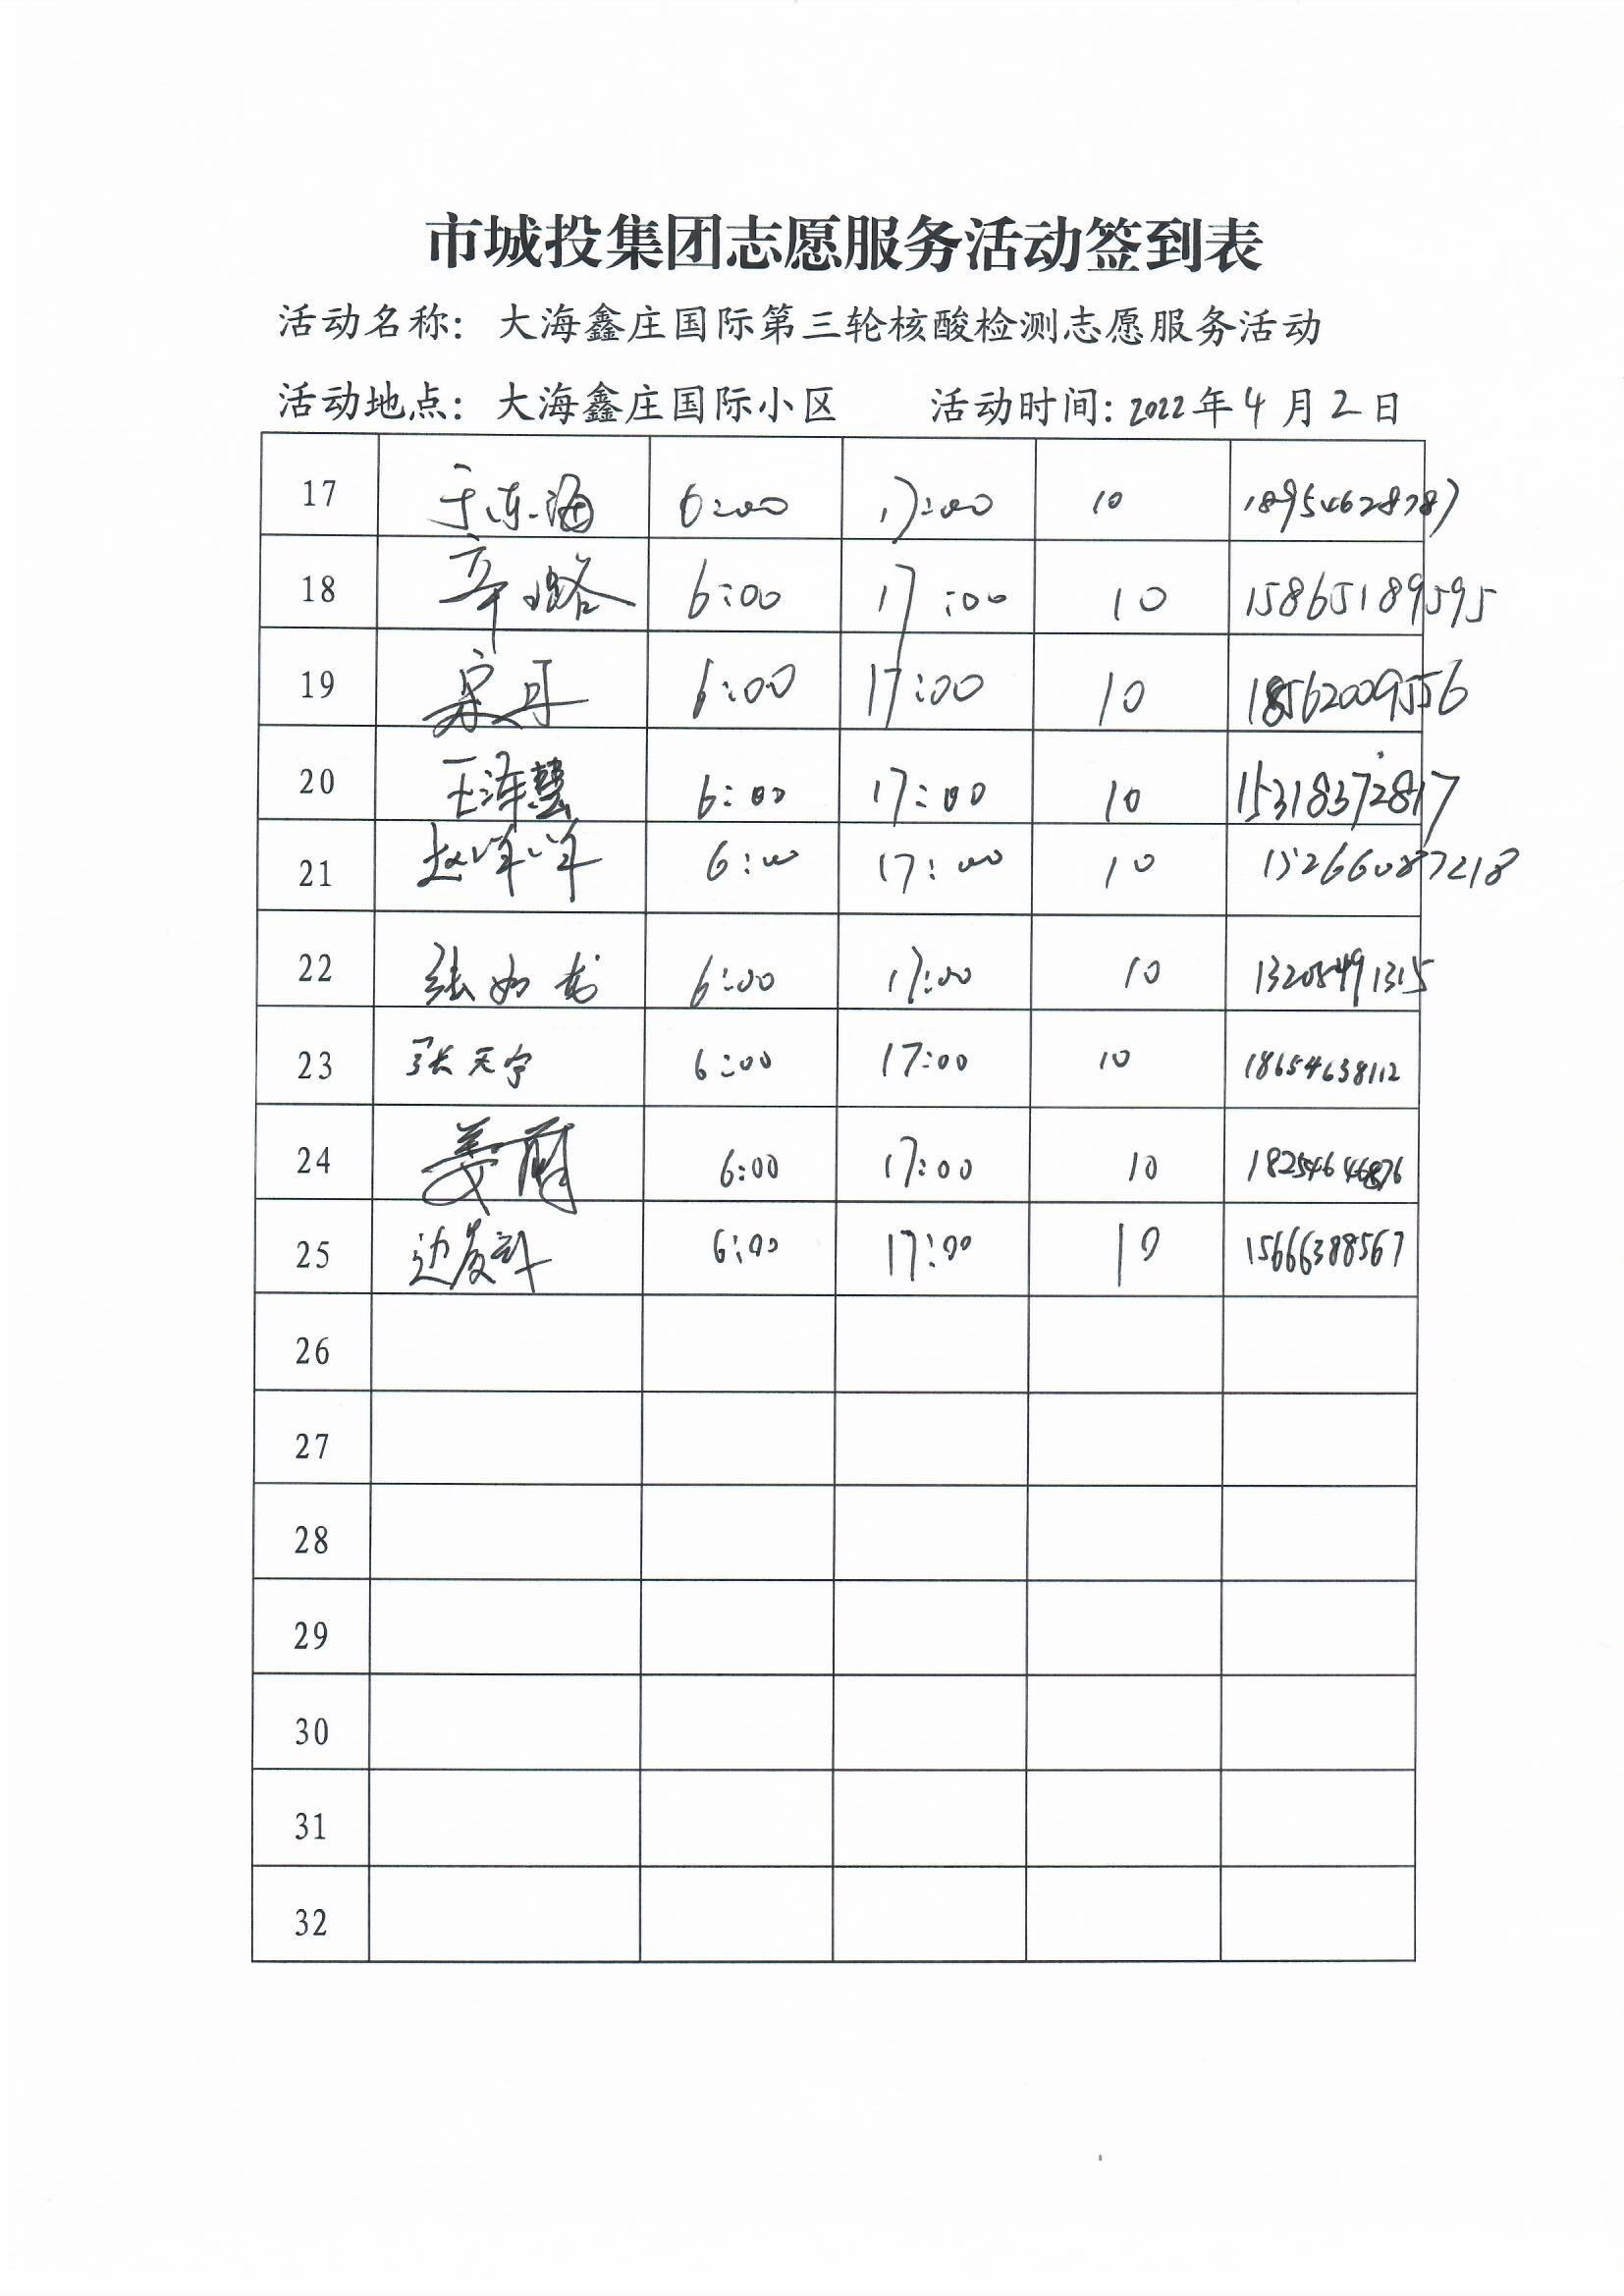 市城投集团志愿服务活动签到表
活动名称: 大海鑫庄国际第三轮核酸检测志愿服务活动
活动地点: 大海鑫庄国际小区 活动时间: 2022年4月2日
17 于东海 6:00 17:00 10 18954628787
18 辛璐 6:00 17:00 10 15865189595
19 宋丹 6:00 17:00 10 18562009556
20 王泽慧 6:00 17:00 10 15318372817
21 赵洋洋 6:00 17:00 10 15266087218
22 张如 6:00 17:00 10 13205491315
23 张天宇 6:00 17:00 10 18654638112
24 姜蔚 6:00 17:00 10 18254646876
25 边 6:00 17:00 10 15666388567
26
27
28
29
30
31
32